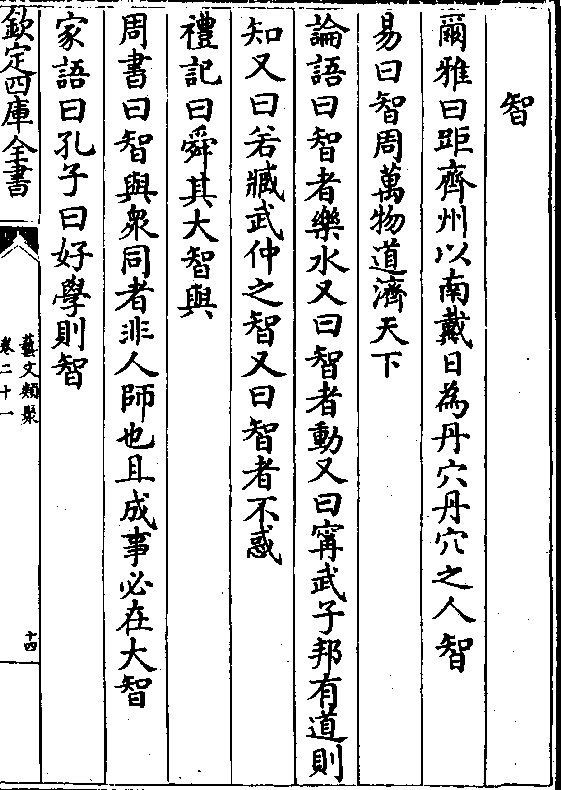 智
爾雅曰距齊州以南戴日為丹穴丹穴之人智
易曰智周萬物道濟天下
論語曰智者樂水又曰智者動又曰甯武子邦有道則
知又曰若臧武仲之智又曰智者不惑
禮記曰舜其大智與
周書曰智與衆同者非人師也且成事必在大智
家語曰孔子曰好學則智
欽定四庫全書
藝文類聚
卷二十一
十四